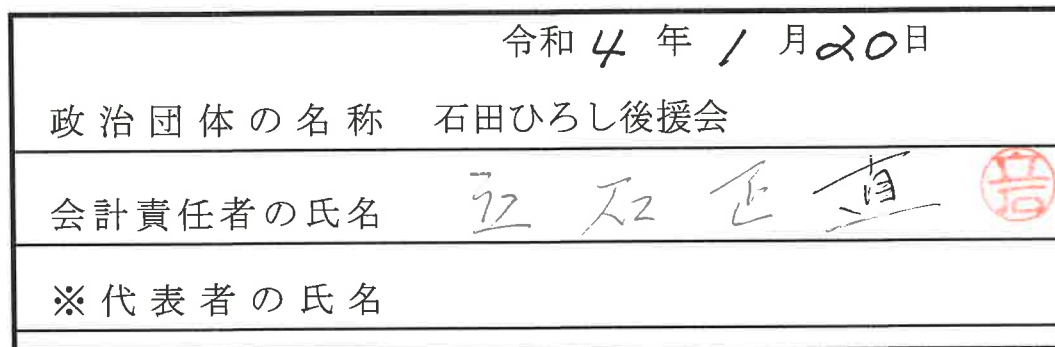 令和 4 年 1 月 20 日
政治団体の名称 石田ひろし後援会
会計責任者の氏名 立石正直 立石
※代表者の氏名